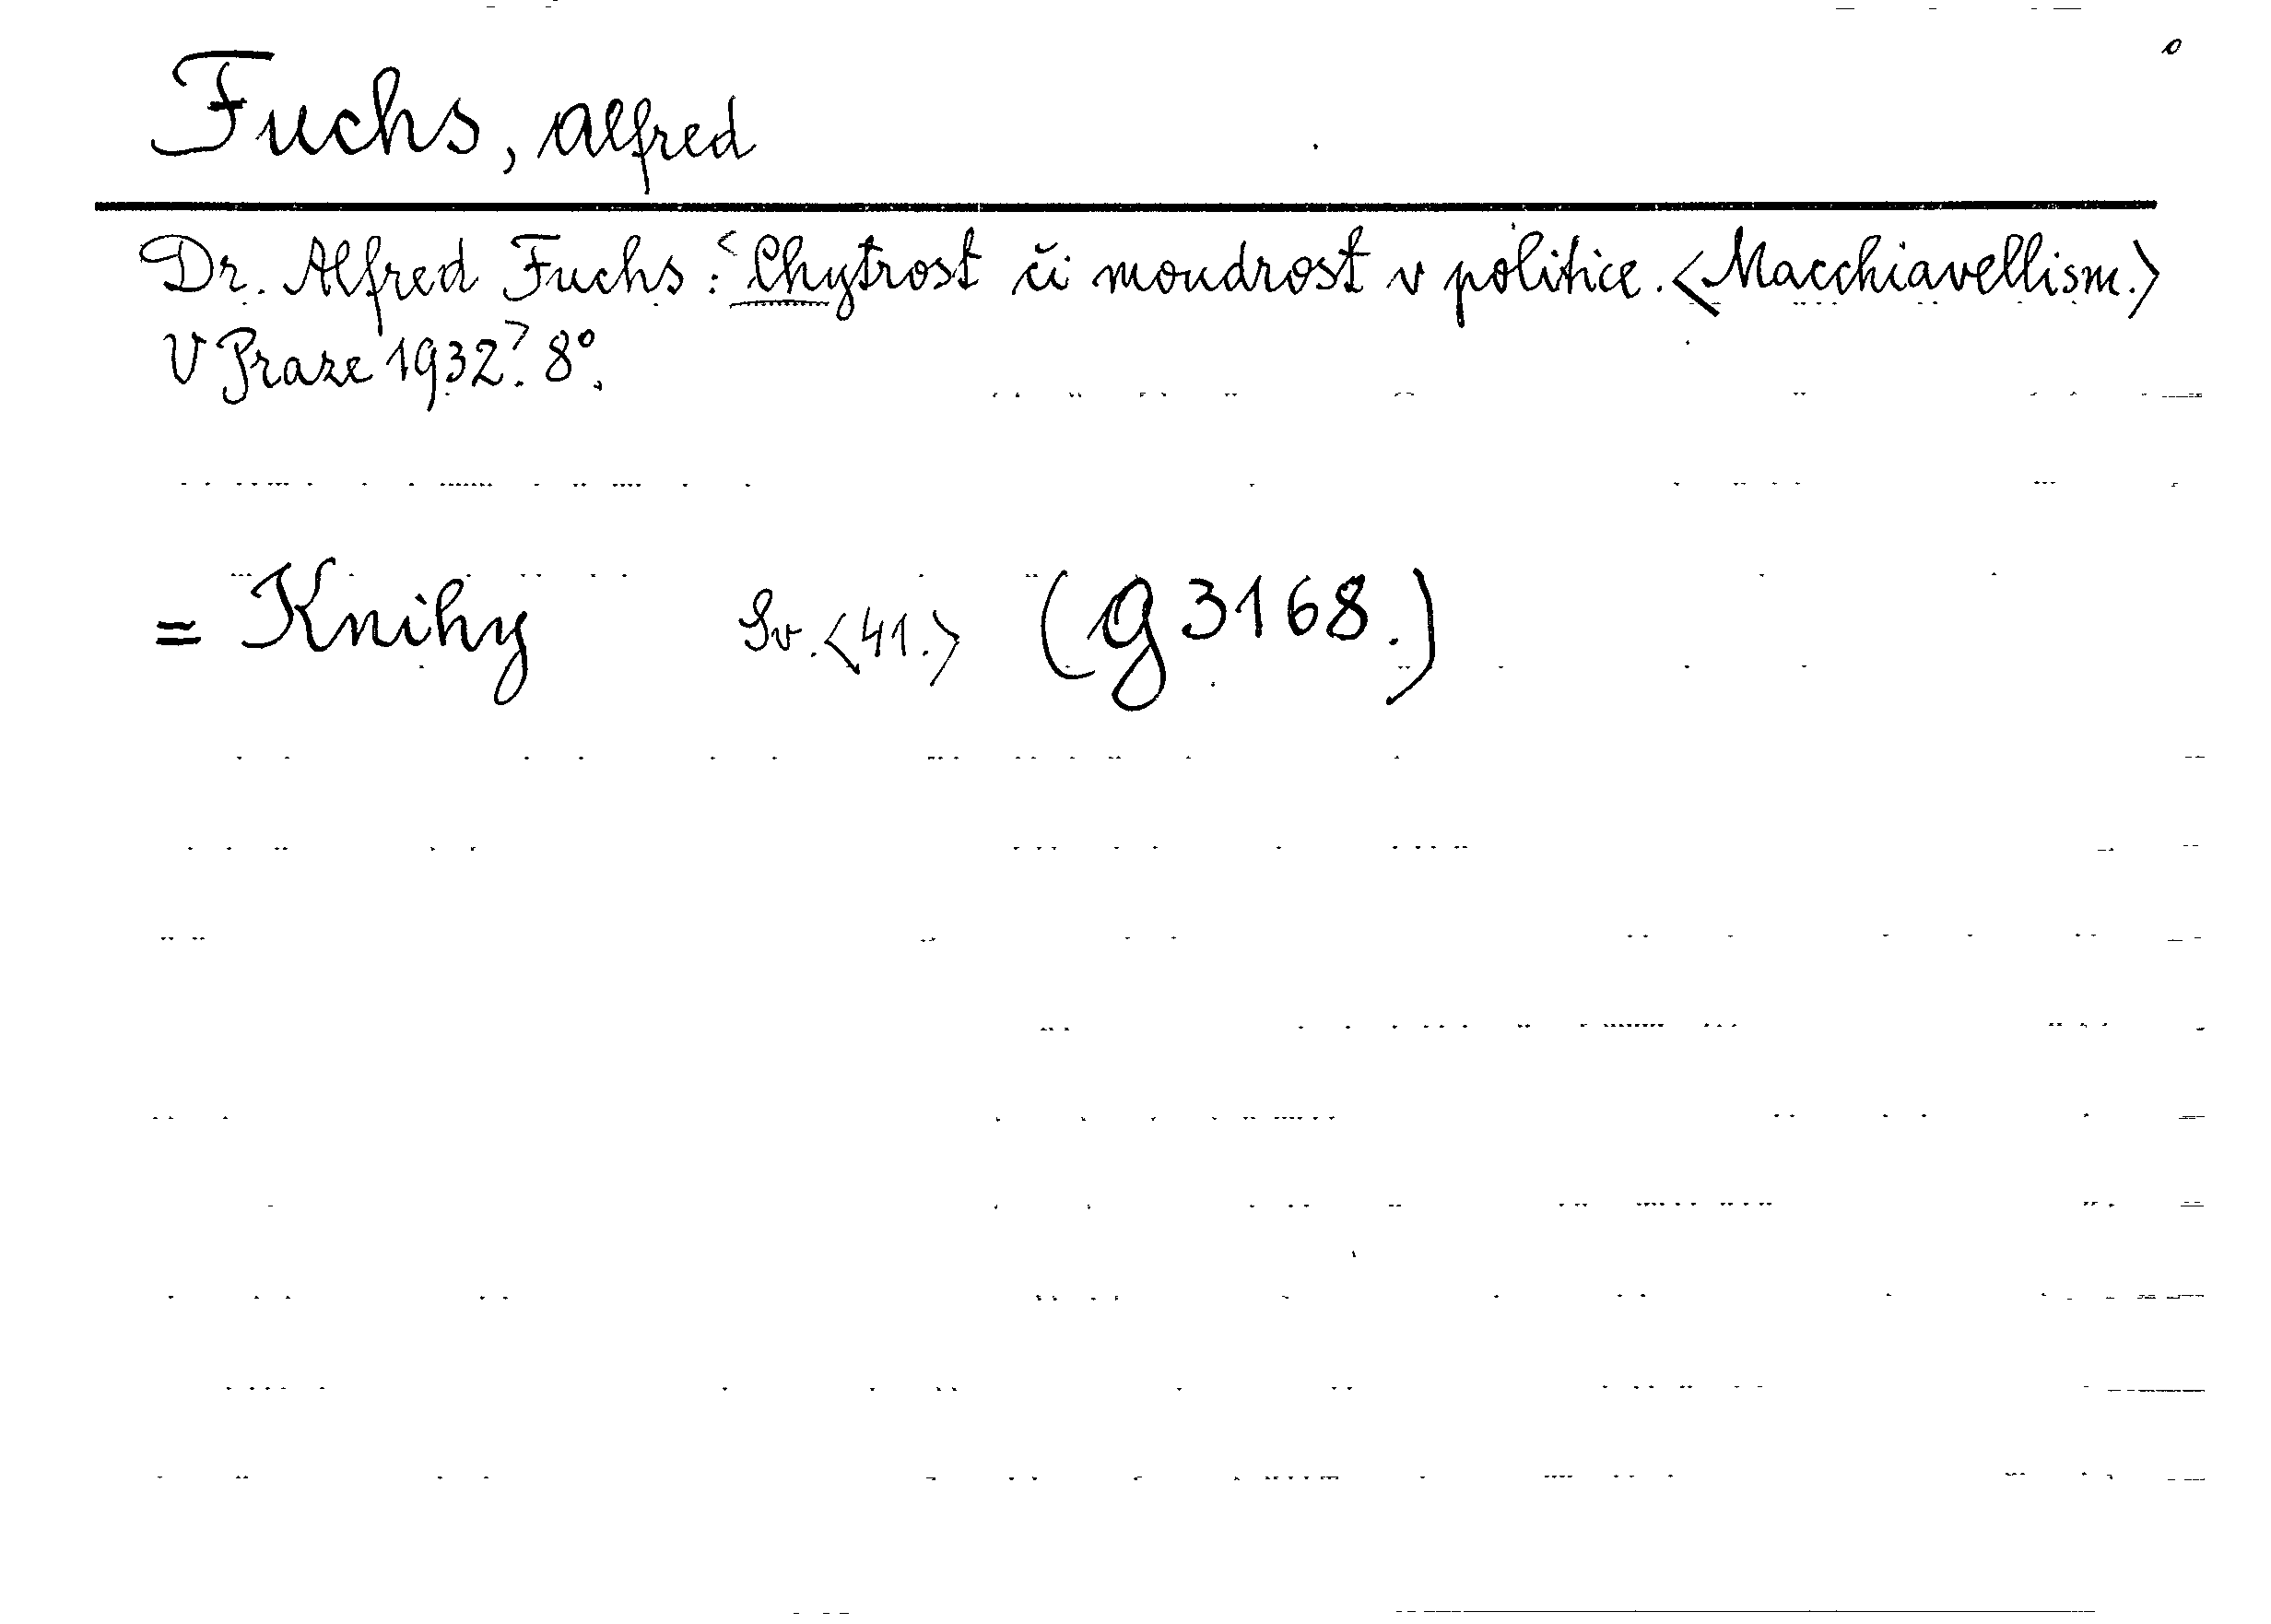 Fuchs, Alfred
Dr. Alfred Fuchs: <Chytrost či moudrost v politice. <Macchiavellism.>
V Praze 1932> 8°.
= Knihy Sv. <41.> (g 3168.)